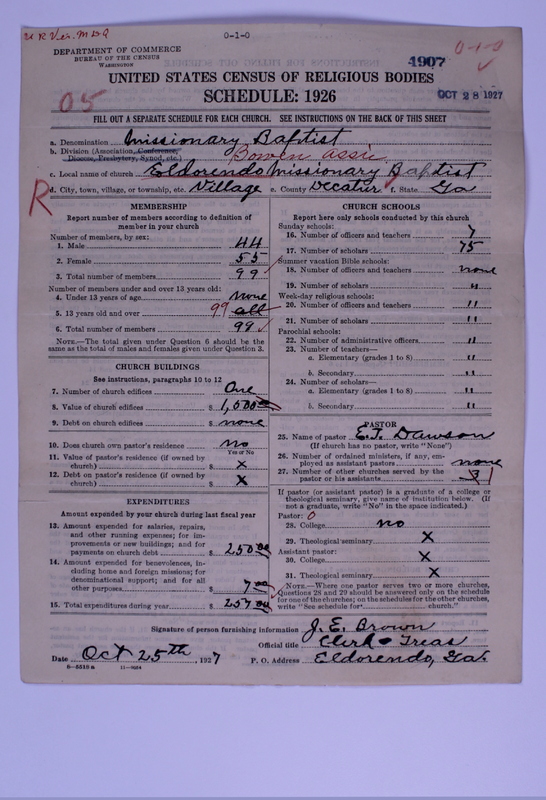 U R Ver. M D Q
0-1-0
DEPARTMENT OF COMMERCE
BUREAU OF THE CENSUS
WASHINGTON
4907
0-1-0
UNITED STATES CENSUS OF RELIGIOUS BODIES
OCT 28 1927
05
SCHEDULE: 1926
FILL OUT A SEPARATE SCHEDULE FOR EACH CHURCH. SEE INSTRUCTIONS ON THE BACK OF THIS SHEET
a. Denomination Missionary Baptist
b. Division (Association, Conference, Diocese, Presbytery, Synod, etc.) Bowen assn.
c. Local name of church Eldorendo Missionary Baptist
R
d. City, town, village, or township, etc. Village e. County Decatur f. State Ga
MEMBERSHIP
Report number of members according to definition of
member in your church
Number of members, by sex:
1. Male 44
2. Female 55
3. Total number of members 99
Number of members under and over 13 years old:
4. Under 13 years of age none
5. 13 years old and over 99 all
6. Total number of members 99
NOTE.—The total given under Question 6 should be the
same as the total of males and females given under Question 3.
CHURCH BUILDINGS
See instructions, paragraphs 10 to 12
7. Number of church edifices One
8. Value of church edifices $ 1,000 00
9. Debt on church edifices $ none
10. Does church own pastor's residence no
Yes or No
11. Value of pastor's residence (if owned by
church) $ x
12. Debt on pastor's residence (if owned by
church) $ x
EXPENDITURES
Amount expended by your church during last fiscal year
13. Amount expended for salaries, repairs,
and other running expenses; for im-
provements or new buildings; and for
payments on church debt $ 250 00
14. Amount expended for benevolences, in-
cluding home and foreign missions; for
denominational support; and for all
other purposes $ 7 00
15. Total expenditures during year $ 257 00
CHURCH SCHOOLS
Report here only schools conducted by this church
Sunday schools:
16. Number of officers and teachers 7
17. Number of scholars 75
Summer vacation Bible schools:
18. Number of officers and teachers none
19. Number of scholars "
Week-day religious schools:
20. Number of officers and teachers "
21. Number of scholars "
Parochial schools:
22. Number of administrative officers "
23. Number of teachers—
a. Elementary (grades 1 to 8) "
b. Secondary "
24. Number of scholars—
a. Elementary (grades 1 to 8) "
b. Secondary "
PASTOR
25. Name of pastor E. T. Dawson
(If church has no pastor, write "None")
26. Number of ordained ministers, if any, em-
ployed as assistant pastors none
27. Number of other churches served by the
pastor or his assistants 3
If pastor (or assistant pastor) is a graduate of a college or
theological seminary, give name of institution below. (If
not a graduate, write "No" in the space indicated.)
Pastor: 0
28. College no
29. Theological seminary x
Assistant pastor:
30. College x
31. Theological seminary x
NOTE.—Where one pastor serves two or more churches,
Questions 28 and 29 should be answered only on the schedule
for one of the churches; on the schedules for the other churches,
write "See schedule for church."
Signature of person furnishing information J. E. Brown
Official title Clerk & Treas
Date Oct 25th, 1927 P. O. Address Eldorendo, Ga.